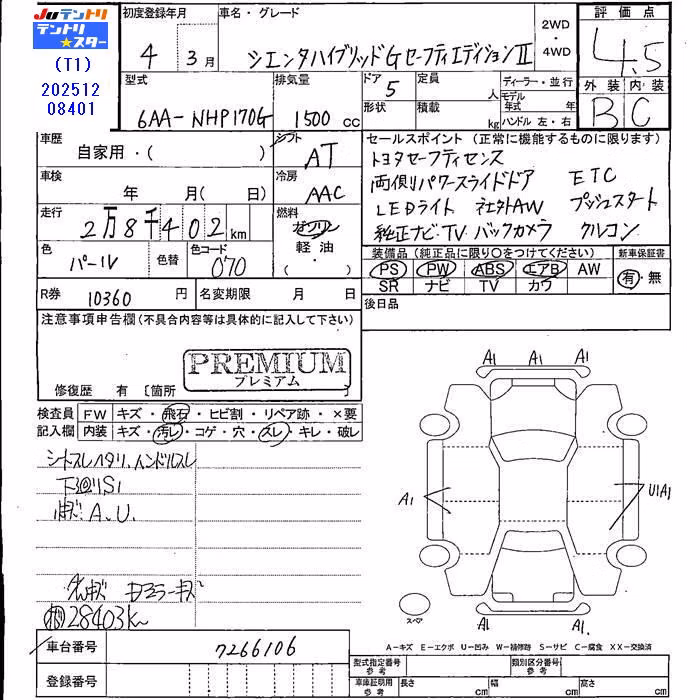 Juテントリ
テントリ★スター
(T1)
202512
08401
初度登録年月
4年3月
車名・グレード
シエンタハイブリッドGセーフティエディションⅡ
2WD
・
4WD
評価点
4.5
外装 内装
B C
型式
6AA-NHP170G
排気量
1500cc
ドア 5
形状
定員 人
積載 kg
ディーラー・並行
モデル年式 年
ハンドル 左・右
車歴
自家用・( )
シフト
AT
セールスポイント(正常に機能するものに限ります)
トヨタセーフティセンス
両側パワースライドドア ETC
LEDライト 社外AW プッシュスタート
純正ナビ.TV バックカメラ クルコン
車検
年 月( 日)
冷房
AAC
走行
2万8千402km
燃料
ガソリン
軽油
( ・ )
色
パール
色替
色コード
070
装備品(純正品に限り○をつけてください)
PS PW ABS エアB AW
SR ナビ TV カワ
新車保証書
有・無
R券 10360円
名変期限 月 日
後日品
注意事項申告欄(不具合内容等は具体的に記入して下さい)
PREMIUM
プレミアム
修復歴 有 〔箇所
検査員
記入欄
FW キズ・飛石・ヒビ割・リペア跡・×要
内装 キズ・汚レ・コゲ・穴・スレ・キレ・破レ
シートスレハタリ、ハンドルスレ
下廻りS1
A.U.
28403km
A1 A1 A1
A1
U1A1
A1 A1
スペア
A-キズ E-エクボ U-凹み W-補修跡 S-サビ C-腐食 XX-交換済
車台番号 7266106
登録番号
型式指定番号
参考
類別区分番号
参考
車庫証明用
参考
長さ cm
幅 cm
高さ cm